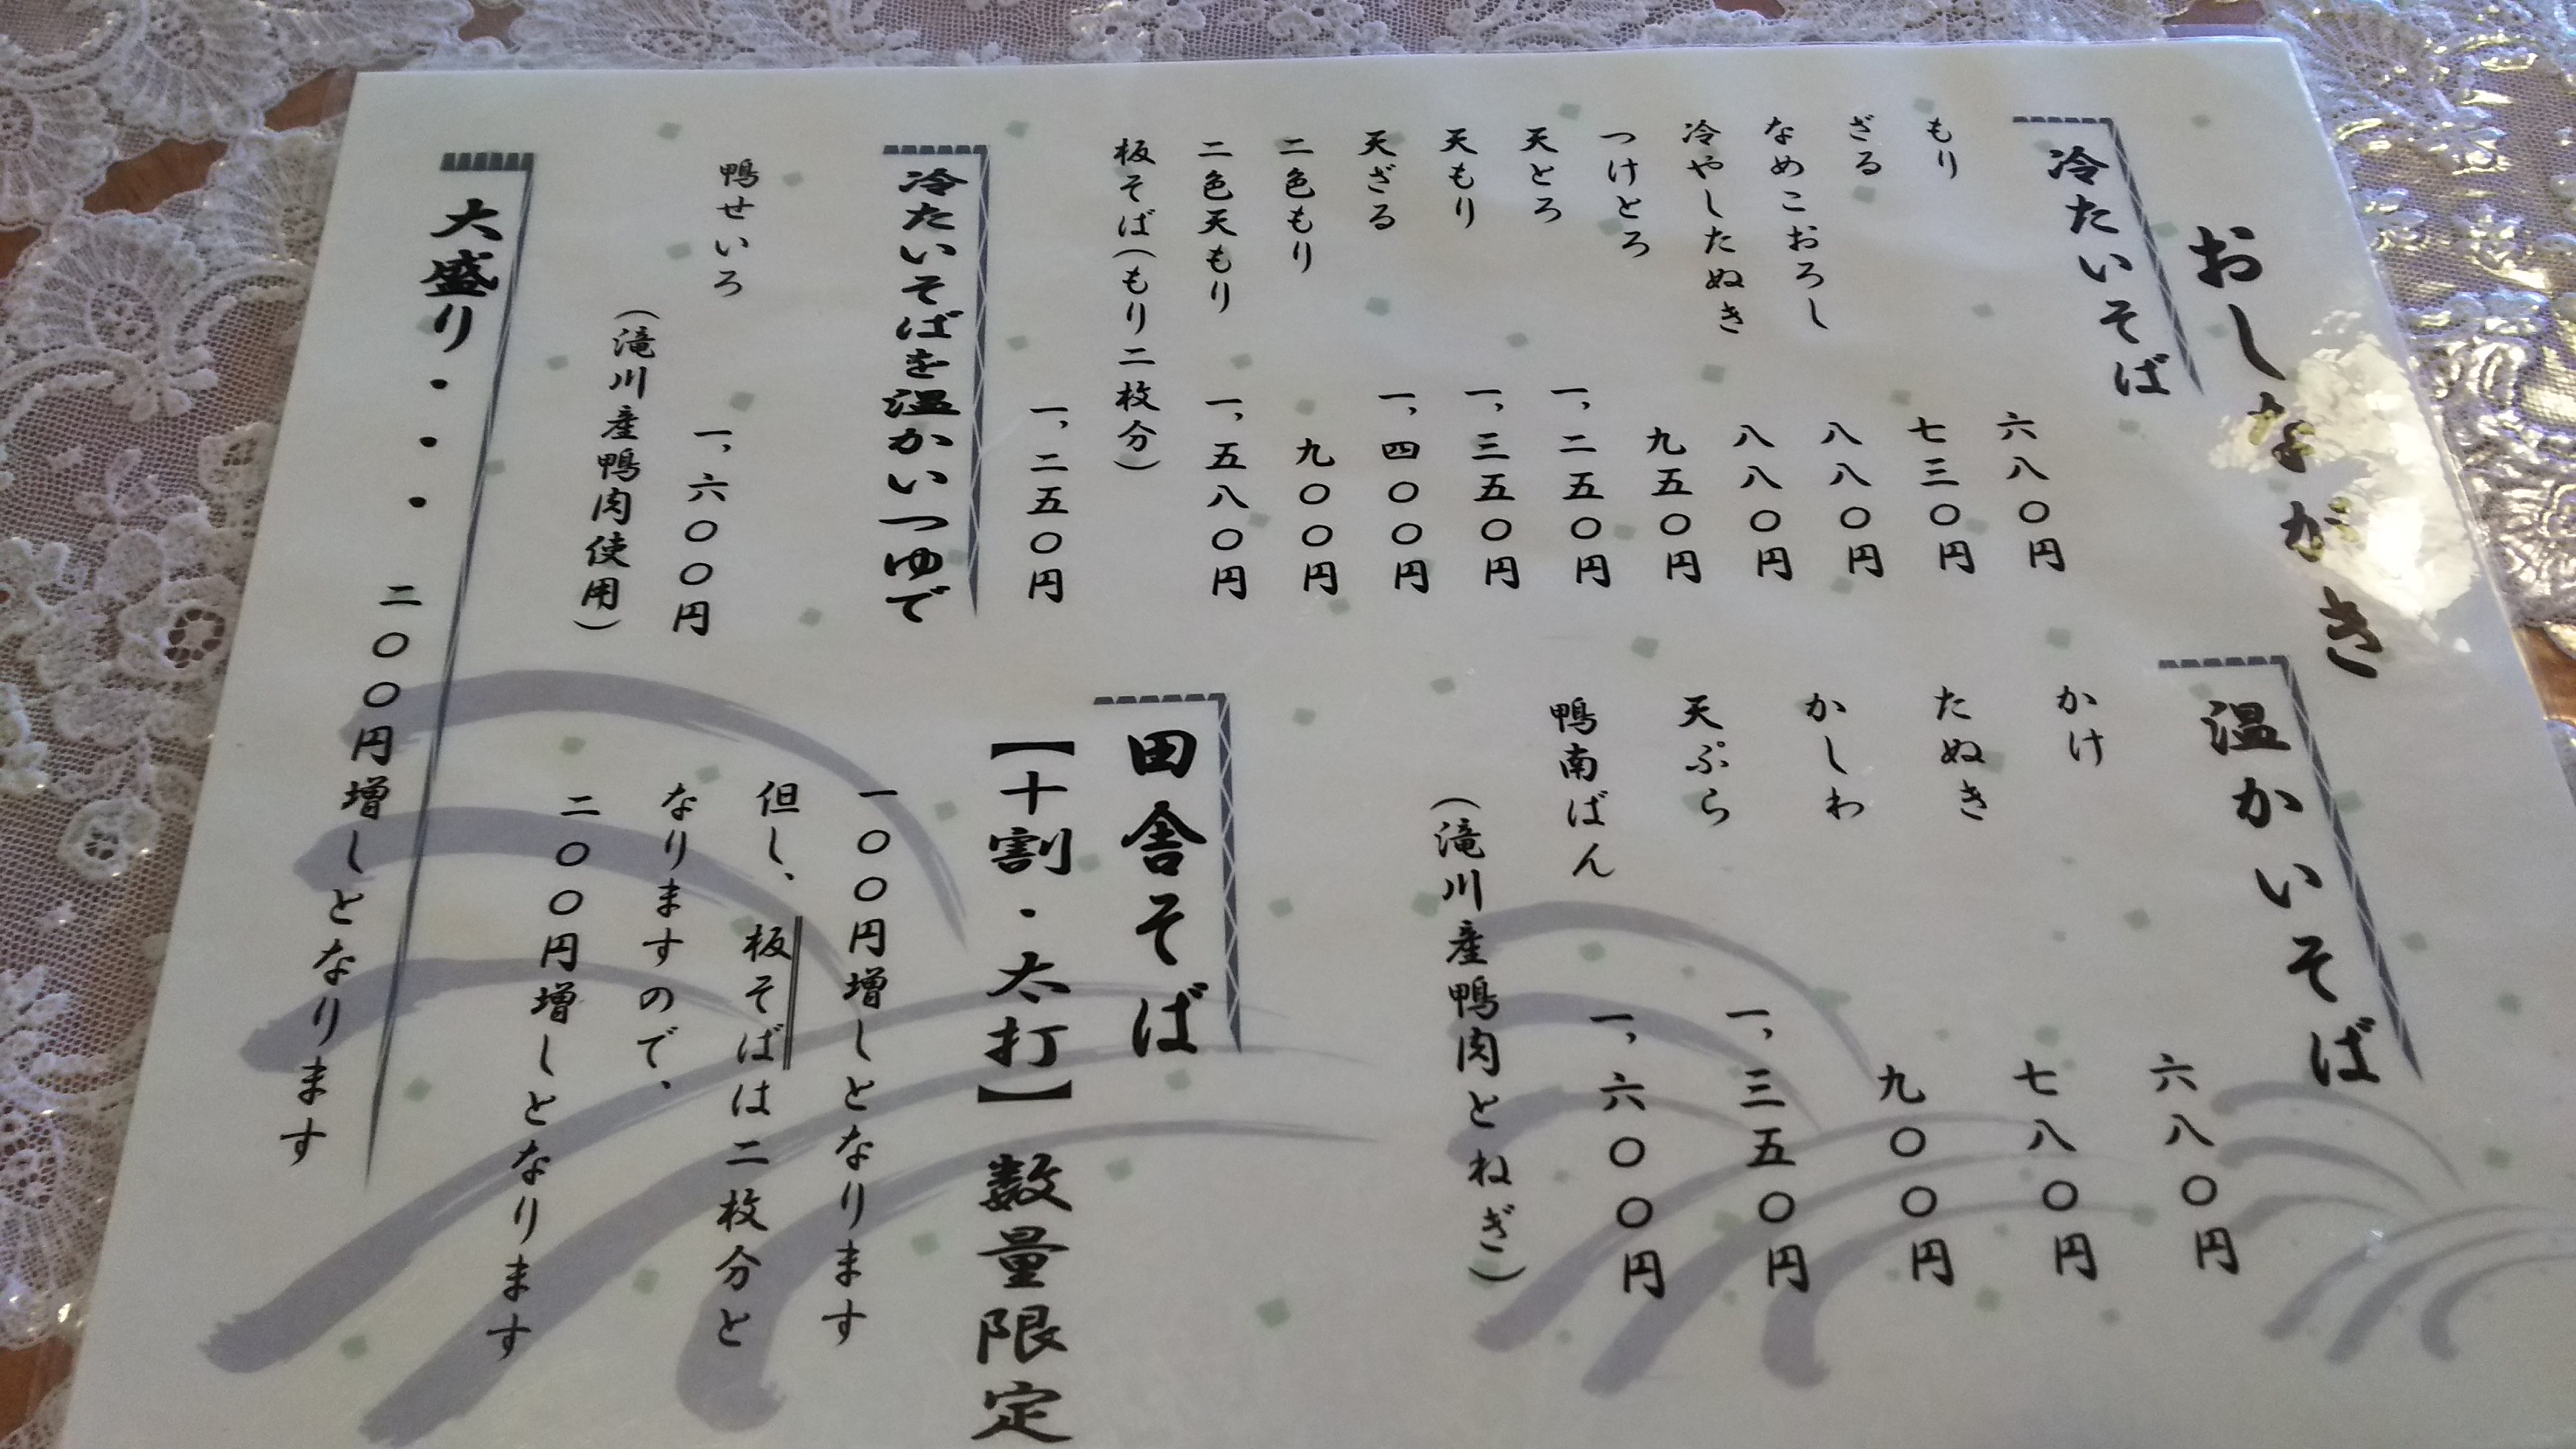 おしながき
冷たいそば
もり 六八〇円
ざる 七三〇円
なめこおろし 八八〇円
冷やしたぬき 八八〇円
つけとろ 九五〇円
天とろ 一、二五〇円
天もり 一、三五〇円
天ざる 一、四〇〇円
二色もり 九〇〇円
二色天もり 一、五八〇円
板そば(もり二枚分)
一、二五〇円
冷たいそばを温かいつゆで
鴨せいろ 一、六〇〇円
(滝川産鴨肉使用)
温かいそば
かけ 六八〇円
たぬき 七八〇円
かしわ 九〇〇円
天ぷら 一、三五〇円
鴨南ばん 一、六〇〇円
(滝川産鴨肉とねぎ)
田舎そば
【十割・太打】数量限定
一〇〇円増しとなります
但し、板そばは二枚分と
なりますので、
二〇〇円増しとなります
大盛り・・・二〇〇円増しとなります